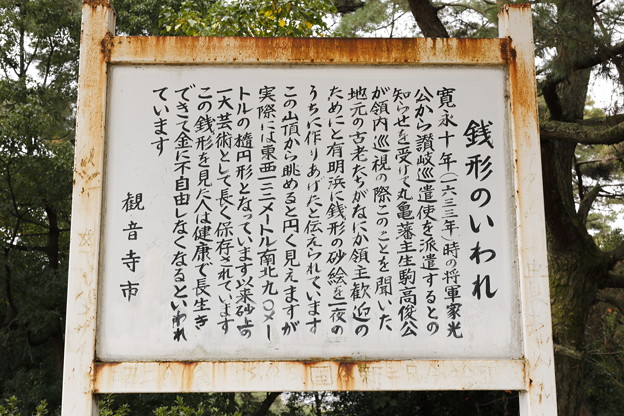 銭形のいわれ
寛永十年(一六三三年)時の将軍家光
公から讃岐巡遣使を派遣するとの
知らせを受けて丸亀藩主生駒高俊公
が領内巡視の際このことを聞いた
地元の古老たちがなにか領主歓迎の
ためにと有明浜に銭形の砂絵を一夜の
うちに作りあげたと伝えられています
この山頂から眺めると円く見えますが
実際には東西一二二メートル南北九〇メー
トルの楕円形となっています以来砂上の
一大芸術として長く保存されています
この銭形を見た人は健康で長生き
できて金に不自由しなくなるといわれ
ています
観音寺市